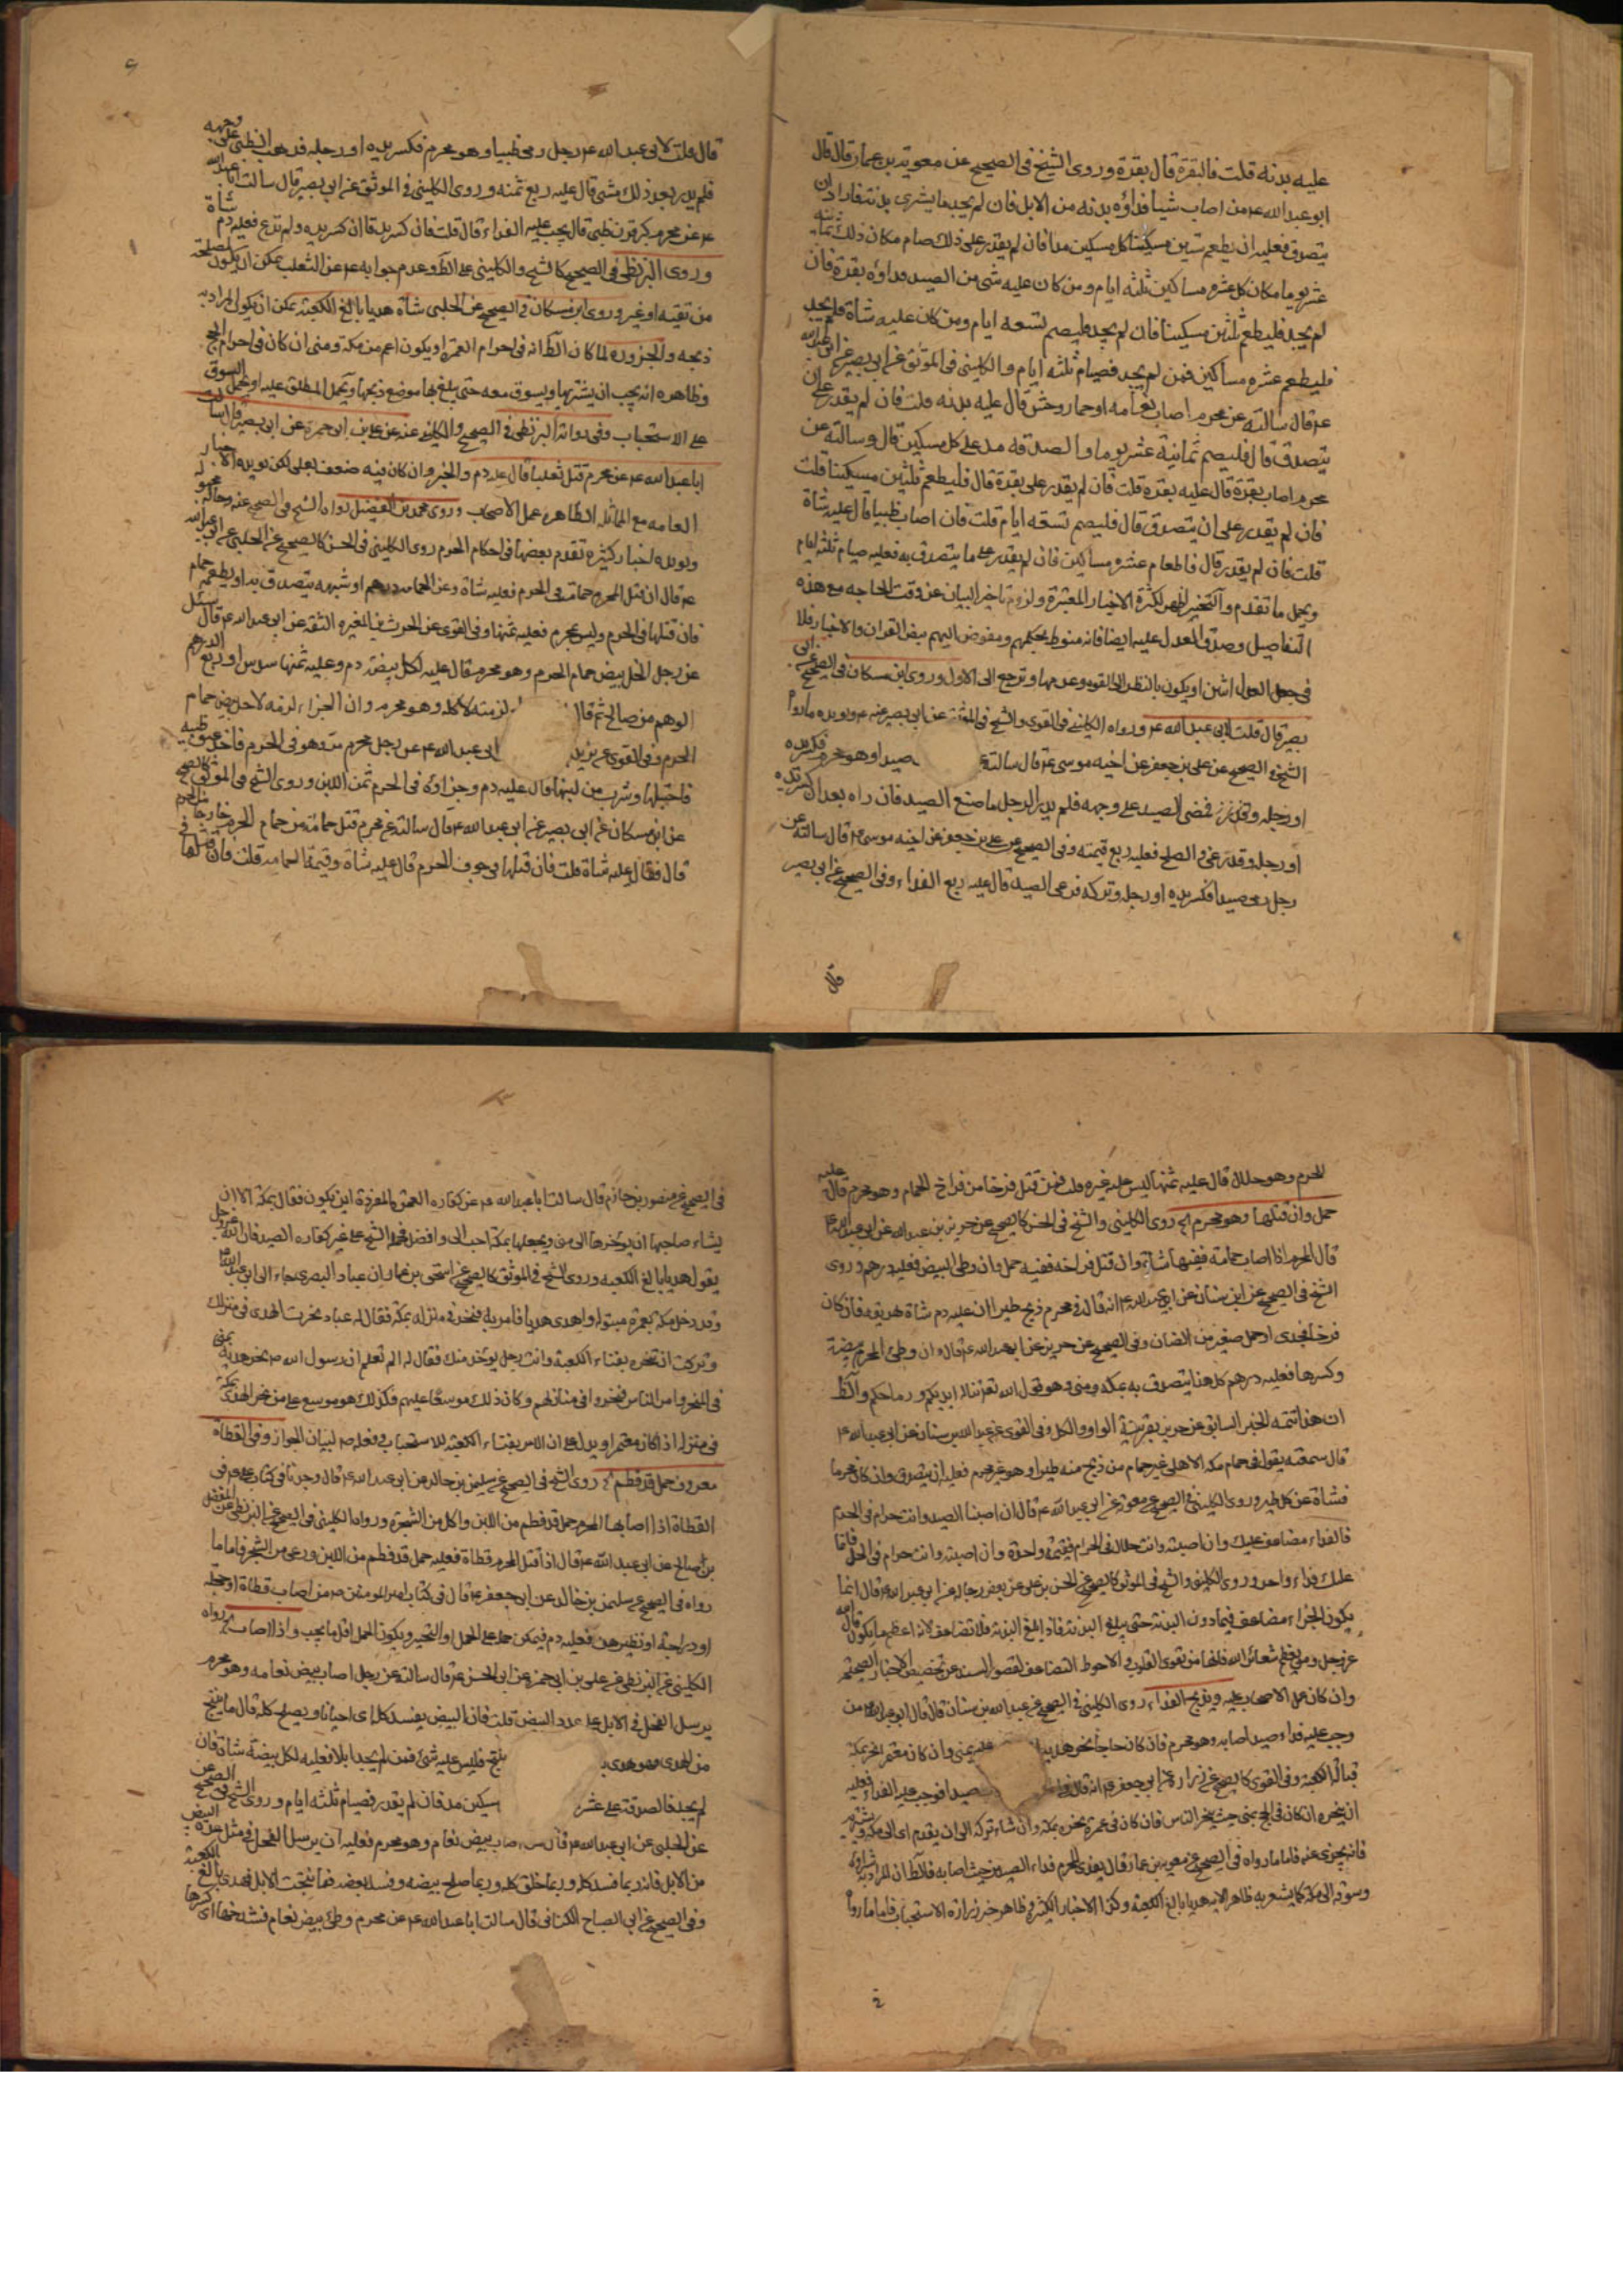 عليه بدنه قلت فالبقرة قال بقرة وروى الشيخ فى الصحيح عن معوية بن عمار قال قال
ابو عبد الله ع من اصاب شيئا فداؤه بدنه من الابل فان لم يجد ما يشترى بدنة فاراد ان
يتصدق فعليه ان يطعم ستين مسكينا كل مسكين مدا فان لم يقدر على ذلك صام مكان ذلك ثمانيه
عشر يوما مكان كل عشره مساكين ثلثه ايام ومن كان عليه شى من الصيد فداؤه بقرة فان
لم يجد فليطعم ثلثين مسكينا فان لم يجد فليصم تسعه ايام ومن كان عليه شاة فلم يجد
فليطعم عشره مساكين فمن لم يجد فصيام ثلثه ايام والكلينى فى الموثق عن ابى بصير عن ابى عبد الله
ع قال سالته عن محرم اصاب نعامه او حمار وحش قال عليه بدنه قلت فان لم يقدر على ان
يتصدق قال فليصم ثمانية عشر يوما والصدقه مد على كل مسكين قال وسالته عن
محرم اصاب بقرة قال عليه بقره قلت فان لم يقدر على بقرة قال فليطعم ثلثين مسكينا قلت
فان لم يقدر على ان يتصدق قال فليصم تسعه ايام قلت فان اصاب ظبيا قال عليه شاة
قلت فان لم يقدر قال فاطعام عشره مساكين فان لم يقدر على ما يتصدق به فعليه صيام ثلثه ايام
ويحمل ما تقدم والتخير اظهر لكثرة الاخبار المعتبرة ولزوم تاخير البيان عن وقت الحاجه مع هذه
التفاصيل وصدق العدل عليه ايضا فانه منوط بحكمهم ومفوض اليهم بنص القران والاخبار فلا
بصير قال قلت لابى عبد الله ع ورواه الكلينى فى القوى والشيخ فى الموثق عن ابى بصير عنه ع ويويده ما رواه
الشيخ فى الصحيح عن على بن جعفر عن اخيه موسى ع قال سالته ع صيدا وهو محرم فكسر يده
او رجله وتركه فمضى الصيد على وجهه فلم يدر الرجل ما صنع الصيد فان راه بعد ان كسر يده
او رجله وقد رعى وانصلح فعليه ربع قيمته وفى الصحيح عن على بن جعفر عن اخيه موسى ع قال سالته عن
رجل رمى صيدا فكسر يده او رجله وتركه فرعى الصيد قال عليه ربع الفداء وفى الصحيح عن ابى بصير
قال
قال قلت لابى عبد الله ع رجل رمى ظبيا وهو محرم فكسر يده او رجله فذهب الظبى على وجهه
فلم يدر بعد ذلك شى قال عليه ربع ثمنه وروى الكلينى فى الموثق عن ابى بصير قال سالت ابا عبد الله
ع عن محرم كسر قرن ظبى قال يجب عليه الفداء قال قلت فان كسر يده قال ان كسر يده ولم يرع فعليه دم شاة
وروى البزنطى فى الصحيح كالشيخ والكلينى
من تقيه او غيره وروى ابن مسكان فى الصحيح عن الحلبى شاة هديا بالغ الكعبة يمكن ان يكون المراد به
ذبحه والجزوره لما كان الظ انه فى احرام العمرة او يكون اعم من مكة ومنى ان كان فى احرام الحج
وظاهره انه يجب ان يشتريها ويسوق معه حتى يبلغ بها موضع ذبحها ويحمل المطلق عليه او يحمل السوق
على الاستحباب وفى رواية البزنطى فى الصحيح والكلينى عنه عن على بن ابى حمزة عن ابى بصير قال سالت
ابا عبد الله ع عن محرم قتل ثعلبا قال عليه دم والخبر وان كان فيه ضعف
العامه مع المماثله الظاهرة عمل الاصحاب وروى محمد بن الفضيل رواه الشيخ فى الصحيح عنه
ويويده اخبار كثيرة تقدم بعضها فى احكام الحرم روى الكلينى فى الحسن كالصحيح عن الحلبى عن ابى عبد الله
ع قال ان قتل المحرم حمامة فى الحرم فعليه شاة وثمن الحمامه درهم او شبهه يتصدق به او يطعمه حمام
فان قتلها فى الحرم وليس بمحرم فعليه ثمنها وفى القوى عن الحرث بن المغيره الثقة عن ابى عبد الله ع قال سئل
عن رجل اكل بيض حمام الحرم وهو محرم قال عليه لكل بيضة دم وعليه ثمنها سدس او ربع الدرهم
الوهم من صالح ثم قال لزمته لاكله وهو محرم وان الجزاء لزمه لاخذه بيض حمام
الحرم وفى القوى عن يزيد ابى عبد الله ع عن رجل محرم مر وهو فى الحرم فاخذ عنق ظبيه
فاحتلبها وشرب من لبنها قال عليه دم وجزاؤه فى الحرم ثمن اللبن وروى الشيخ فى الموثق كالصحيح
عن ابن مسكان عن ابى بصير عن ابى عبد الله ع قال سالته عن محرم قتل حمامة من حمام الحرم خارجا من الحرم
قال فقال عليه شاة قلت فان قتلها فى جوف الحرم قال عليه شاة وقيمة الحمامه قلت فان قتلها فى
الحرم وهو حلال قال عليه ثمنها ليس عليه غيره قلت فمن قتل فرخا من فراخ الحمام وهو محرم قال عليه
حمل وان قتلها وهو محرم الخ روى الكلينى والشيخ فى الحسن كالصحيح عن حريز بن عبد الله عن ابى عبد الله ع
قال المحرم اذا اصاب حمامة ففيها شاة وان قتل فراخه ففيه حمل وان وطى البيض فعليه درهم وروى
الشيخ فى الصحيح عن ابن سنان عن ابى عبد الله ع انه قال فى محرم ذبح طيرا ان عليه دم شاة يهريقه فان كان
فرخا فجدى او حمل صغير من الضان وفى الصحيح عن حريز عن ابى عبد الله ع قال وان وطى المحرم بيضة
وكسرها فعليه درهم كل هذا يتصدق به بمكه ومنى وهو قول الله تعالى تناله ايديكم ورماحكم والظ
ان هذا تتمه الخبر السابق عن حريز بقرينة الواو والكل وفى القوى عن عبد الله بن سنان عن ابى عبد الله ع
قال سمعته يقول فى حمام مكه الاهلى غير حمام من ذبح منه طيرا وهو غير محرم فعليه ان يتصدق وان كان محرما
فشاة عن كل طير وروى الكلينى فى الصحيح عن معوية عن ابى عبد الله ع قال ان اصبت الصيد وانت حرام فى الحرم
فالفداء مضاعف عليك وان اصبته وانت حلال فى الحرام فقيمة واحدة وان اصبته وانت حرام فى الحل فانما
عليك فداء واحد وروى الكلينى والشيخ فى الموثق كالصحيح عن الحسن بن على عن بعض رجاله عن ابى عبد الله ع قال انما
يكون الجزاء مضاعف فيما دون البدنة حتى يبلغ البدنة فاذا بلغ البدنة فلا تضاعف لانه اعظم ما يكون قال الله
عز وجل ومن يعظم شعائر الله فانها من تقوى القلوب والاحوط التضاعف لقصور السند عن تخصيص الاخبار الصحيحة
وان كان عمل الاصحاب عليه ويذبح الفداء روى الكلينى فى الصحيح عن عبد الله بن سنان قال قال ابو عبد الله ع من
وجب عليه فداء صيد اصابه وهو محرم فان كان حاجا نحر هديه عليه بمنى وان كان معتمرا نحر بمكة
قبالة الكعبة وفى القوى كالصحيح عن زرارة عن ابى جعفر ع انه قال صيدا فوجب عليه الفداء فعليه
ان ينحره ان كان فى الحج بمنى حيث ينحر الناس فان كان فى عمرة نحره بمكة وان شاء تركه الى ان يقدم اى الى مكة ويشتريه
فانه يجزى عنه فاما ما رواه فى الصحيح عن معوية بن عمار قال يفدى المحرم فداء الصيد من حيث اصابه فالظ ان المراد به شراؤه
وسوقه الى مكة كما يشعر به ظاهر الايه هديا بالغ الكعبة وكذا الاخبار الكثيرة وظاهر خبر زرارة الاستحباب فاما ما رواه
فى الصحيح عن منصور بن حازم قال سالت ابا عبد الله ع عن كفاره العمرة المفردة اين يكون فقال بمكة الا ان
يشاء صاحبها ان يؤخرها الى منى ويجعلها بمكة احب الى وافضل فحمله الشيخ على غير كفاره الصيد فان الله عز وجل
يقول هديا بالغ الكعبه وروى الشيخ فى الموثق كالصحيح عن اسحق بن عمار ان عباد البصرى جاء الى ابى عبد الله ع
وقد دخل مكة بعمرة مبتولة واهدى هديا فامر به فنحر فى منزله بمكة فقال له عباد نحرت الهدى فى منزلك
وتركت ان تنحره بفناء الكعبة وانت رجل يوخذ منك فقال له الم تعلم ان رسول الله ص نحر هديه بمنى
فى المنحر وامر الناس فنحروا فى منازلهم وكان ذلك موسعا عليهم فكذلك هو موسع على من نحر الهدى بمكة
فى منزله اذا كان معتمرا ويدل على ان الامر بفناء الكعبة للاستحباب وفعله ص لبيان الجواز وفى القطاة
حمل قد فطم الخ روى الشيخ فى الصحيح عن سليمن بن خالد عن ابى عبد الله ع قال وجدنا فى كتاب على ع فى
القطاة اذا اصابها المحرم حمل قد فطم من اللبن واكل من الشجرة ورواه الكلينى فى الصحيح عن البزنطى عن المفضل
بن صالح عن ابى عبد الله ع قال اذا قتل المحرم قطاة فعليه حمل قد فطم من اللبن ورعى من الشجر فاما ما
رواه فى الصحيح عن سليمن بن خالد عن ابى جعفر ع قال فى كتاب امير المومنين ع من اصاب قطاة او حجلة
او دراجة او نظيرهن فعليه دم فيمكن حمله على الحمل او التخيير ويكون الحمل اقل ما يجب واذا اصاب الخ رواه
الكلينى عن البزنطى عن على بن ابى حمزة عن ابى الحسن ع قال سالته عن رجل اصاب بيض نعامه وهو محرم
يرسل الفحل فى الابل على عدد البيض قلت فان البيض يفسد كله اى احيانا ويصلح كله قال ما ينتج
من الهدى فهو هدى ينتج فليس عليه شى فمن لم يجد ابلا فعليه لكل بيضة شاة فان
لم يجد فالصدقة على عشر مسكين مد فان لم يقدر فصيام ثلثه ايام وروى الشيخ فى الصحيح عن
عن الحلبى عن ابى عبد الله ع قال من اصاب بيض نعام وهو محرم فعليه ان يرسل الفحل فى مثل عدة البيض
من الابل فانه ربما فسد كله وربما خلق كله وربما صلح بعضه وفسد بعضه فما نتجت الابل فهدى بالغ الكعبة
وفى الصحيح عن ابى الصباح الكنانى قال سالت ابا عبد الله ع عن محرم وطى بيض نعام فشدخها اى كسرها